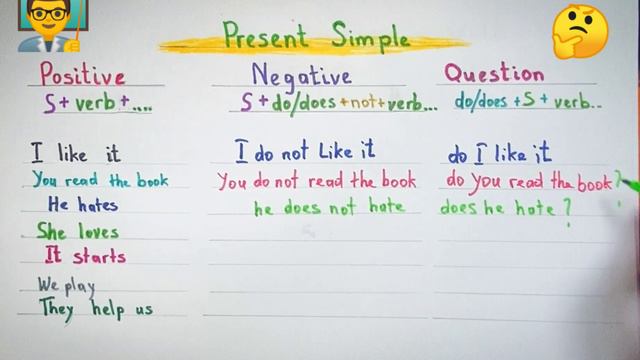 Present Simple
Positive
S+ verb+....
I like it
You read the book
He hates
She loves
It starts
We play
They help us
Negative
S+do/does+not+verb...
I do not Like it
You do not read the book
he does not hate
Question
do/does +S+ verb..
do I like it
do you read the book?
does he hate?